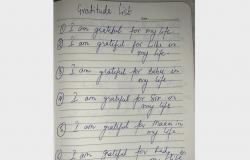 Gratitude List
① I am grateful for my life
② I am grateful for in
my life
③ I am grateful for baby in
my life
④ I am grateful for Sir in
my life
⑤ I am grateful for in
my life
I am grateful for